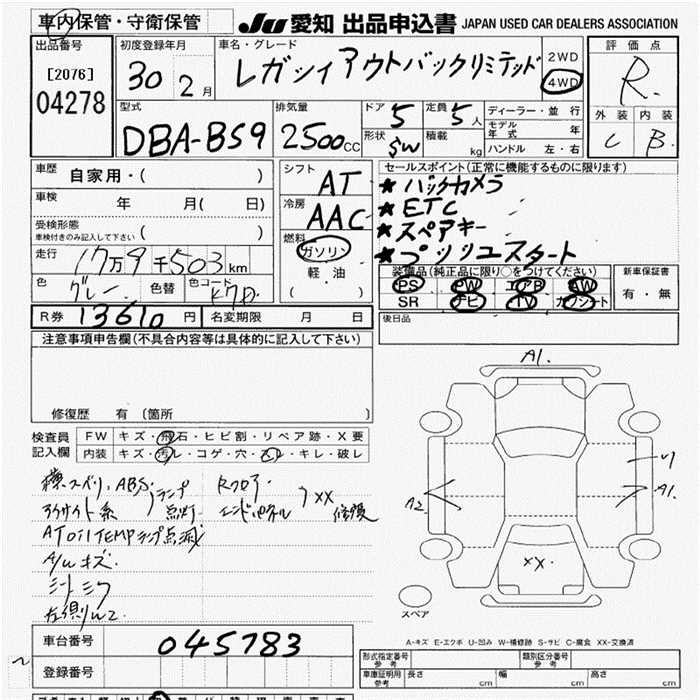 車内保管・守衛保管
JU 愛知 出品申込書 JAPAN USED CAR DEALERS ASSOCIATION
出品番号
[2076]
04278
初度登録年月
30 2月
車名・グレード
レガシィアウトバックリミテッド
2WD
4WD
評価点
R
外装 内装
C B
型式
DBA-BS9
排気量
2500CC
ドア 5
定員 5人
形状 SW
積載 kg
ディーラー・並行
モデル年式 年
ハンドル 左・右
車歴
自家用・( )
車検 年 月( 日)
受検形態
車検付きのみ記入して下さい ( )
走行 17万9千503km
色 グレー
色替
色コード
シフト AT
冷房 AAC
燃料
ガソリン
軽油
( )
セールスポイント(正常に機能するものに限ります)
★バックカメラ
★ETC
★スペアキー
★プッシュスタート
装備品(純正品に限り○をつけてください)
PS PW エアB AW
SR ナビ TV カワシート
新車保証書
有・無
後日品
R券 13610円
名変期限 月 日
注意事項申告欄(不具合内容等は具体的に記入して下さい)
修復歴 有 〔箇所 〕
検査員記入欄
FW キズ・飛石・ヒビ割・リペア跡・X要
内装 キズ・汚レ・コゲ・穴・スレ・キレ・破レ
横スベリ、ABS
アイサイト系 ランプ点灯
ATOilTEMPランプ点滅
Rフロア
エンドパネル XX 修復
A/Wキズ
シートシワ
A1
A2
A1
XX
スペア
A-キズ E-エクボ U-凹み W-補修跡 S-サビ C-腐食 XX-交換済
車台番号 045783
登録番号
形式指定番号 参考
類別区分番号 参考
車庫証明用 参考 長さ cm 幅 cm 高さ cm